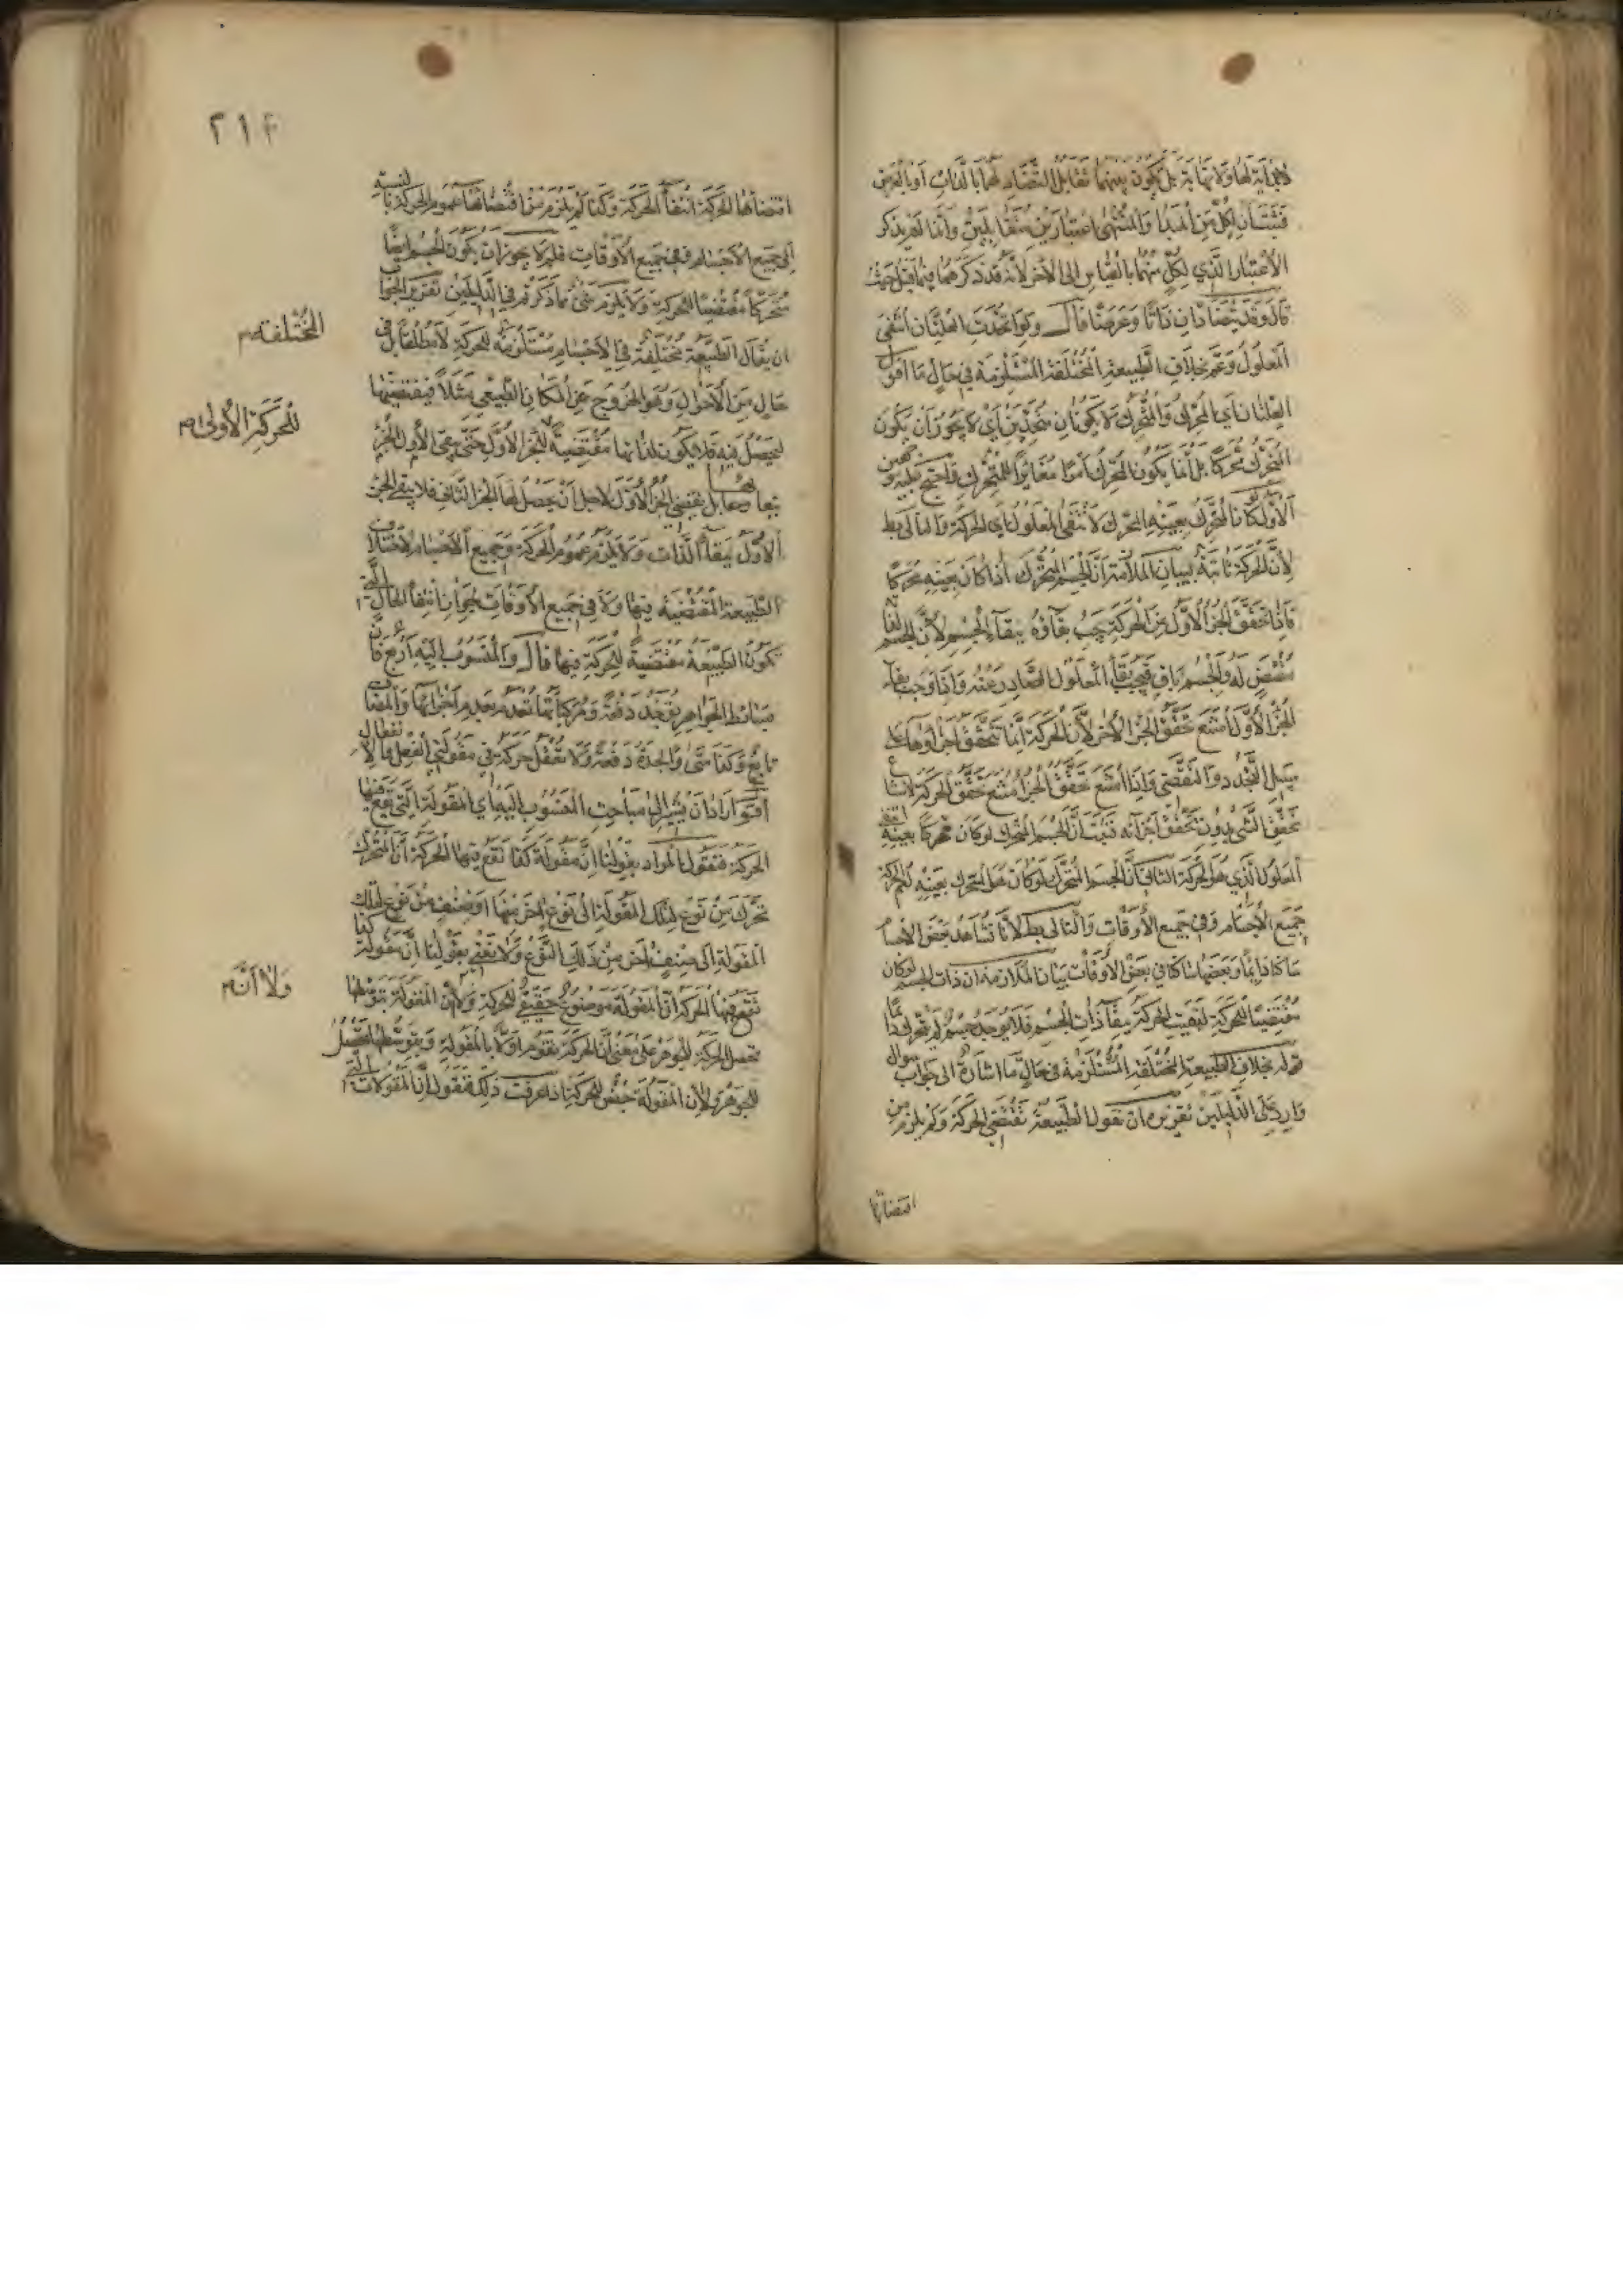 لا بداية لها ولا نهاية بل يكون بينهما تقابل التضاد لهما بالذات او بالعرض
فثبت ان لكل من المبدا والمنتهى اعتبارين متقابلين وانما لم يذكر
الاعتبار الذي لكل منهما بالقياس الى الاخر لانه قد ذكرهما فيما قبل حيث
قال وقد يتضادان ذاتا وعرضا قال ولو اتحدت العلتان انتفى
المعلول وعم بخلاف الطبيعة المختلفة المستلزمة في حال ما اقول
العلتان اي المحرك والمتحرك لا يكونان متحدين اي لا يجوز ان يكون
المتحرك محركا بل انما يكون المحرك امرا مغايرا للمتحرك واحتج عليه بوجهين
الاول لو كان المتحرك بعينه المحرك لانتفى المعلول اي الحركة والتالي بط
لان الحركة ثابتة بيان الملازمة ان الجسم المتحرك اذا كان بعينه محركا
فاذا تحقق الجزء الاول من الحركة يجب بقاؤه ببقاء الجسم لان الجسم
مقتض له والجسم باق فيجب بقاء المعلول الصادر عنه واذا وجب بقاء
الجزء الاول امتنع تحقق الجزء الاخر لان الحركة انما تتحقق اجزاؤها على
سبيل التجدد والتقضي واذا امتنع تحقق الجزء امتنع تحقق الحركة لامتناع
تحقق الشئ بدون تحقق اجزائه فثبت ان الجسم المتحرك لو كان محركا بعينه انتفى
المعلول الذي هو الحركة الثاني ان الجسم المتحرك لو كان هو المحرك بعينه لعم الحركة
جميع الاجسام وفي جميع الاوقات والتالي بط لانا نشاهد بعض الاجسام
ساكنا دايما وبعضها ساكنا في بعض الاوقات بيان الملازمة ان ذات الجسم لو كان
مقتضيا للحركة لبقيت الحركة ببقاء ذات الجسم فلا يوجد جسم لم يتحرك دائما
قوله بخلاف الطبيعة المختلفة المستلزمة في حال ما اشارة الى جواب سوال
وارد على الدليلين تقريره ان تقول الطبيعة تقتضي الحركة ولم يلزم من
اقتضائها
٢١٤
اقتضائها الحركة انتفاء الحركة وكذا لم يلزم من اقتضائها عموم الحركة بالنسبة
الى جميع الاجسام في جميع الاوقات فلم لا يجوز ان يكون الجسم ايضا
متحركا مقتضيا للحركة ولا يلزم شئ مما ذكرتم في الدليلين تقرير الجواب
ان يقال الطبيعة مختلفة في الاجسام مستلزمة للحركة لا مطلقا بل في
المختلفة
حال من الاحوال وهو الخروج عن المكان الطبيعي مثلا فيقتضيها
ليحصل فيه فلا يكون لذاتها مقتضية للجزء الاول حتى يبقى الاول الجزء
للحركة الاولى
ببقائها بل يقتضي الجزء الاول لاجل ان يحصل لها الجزء الثاني فلا يبقى الجزء
الاول ببقاء الذات ولا يلزم عموم الحركة وجميع الاجسام لاختلاف
الطبيعة المقتضية فيها ولا في جميع الاوقات لجواز انتفاء الحال التي
تكون الطبيعة مقتضية للحركة فيها قال والمنسوب اليه اربع فان
بسائط الجواهر يوجد دفعة ومركباتها تعدم بعدم اجزائها والمضاف
تابع وكذا متى والجدة دفعة ولا تعقل حركة في مقولتي الفعل والانفعال
اقول اراد ان يشير الى مباحث المنسوب اليه اي المقولة التي تقع فيها
الحركة فنقول المراد بقولنا ان مقولة كذا تقع فيها الحركة ان المتحرك
تحرك من نوع لتلك المقولة الى نوع اخر منها او من صنف من نوع لتلك
المقولة الى صنف اخر من ذلك النوع ولا نعني بقولنا ان مقولة كذا
تقع فيها الحركة ان المقولة موضوع حقيقي للحركة ولا ان المقولة بتوسطها
ولا ان
تحصل الحركة للجوهر على معنى ان الحركة تقوم اولا بالمقولة وبتوسطها تحصل
للجوهر ولا ان المقولة جنس للحركة اذا عرفت ذلك فنقول ان المقولات التي